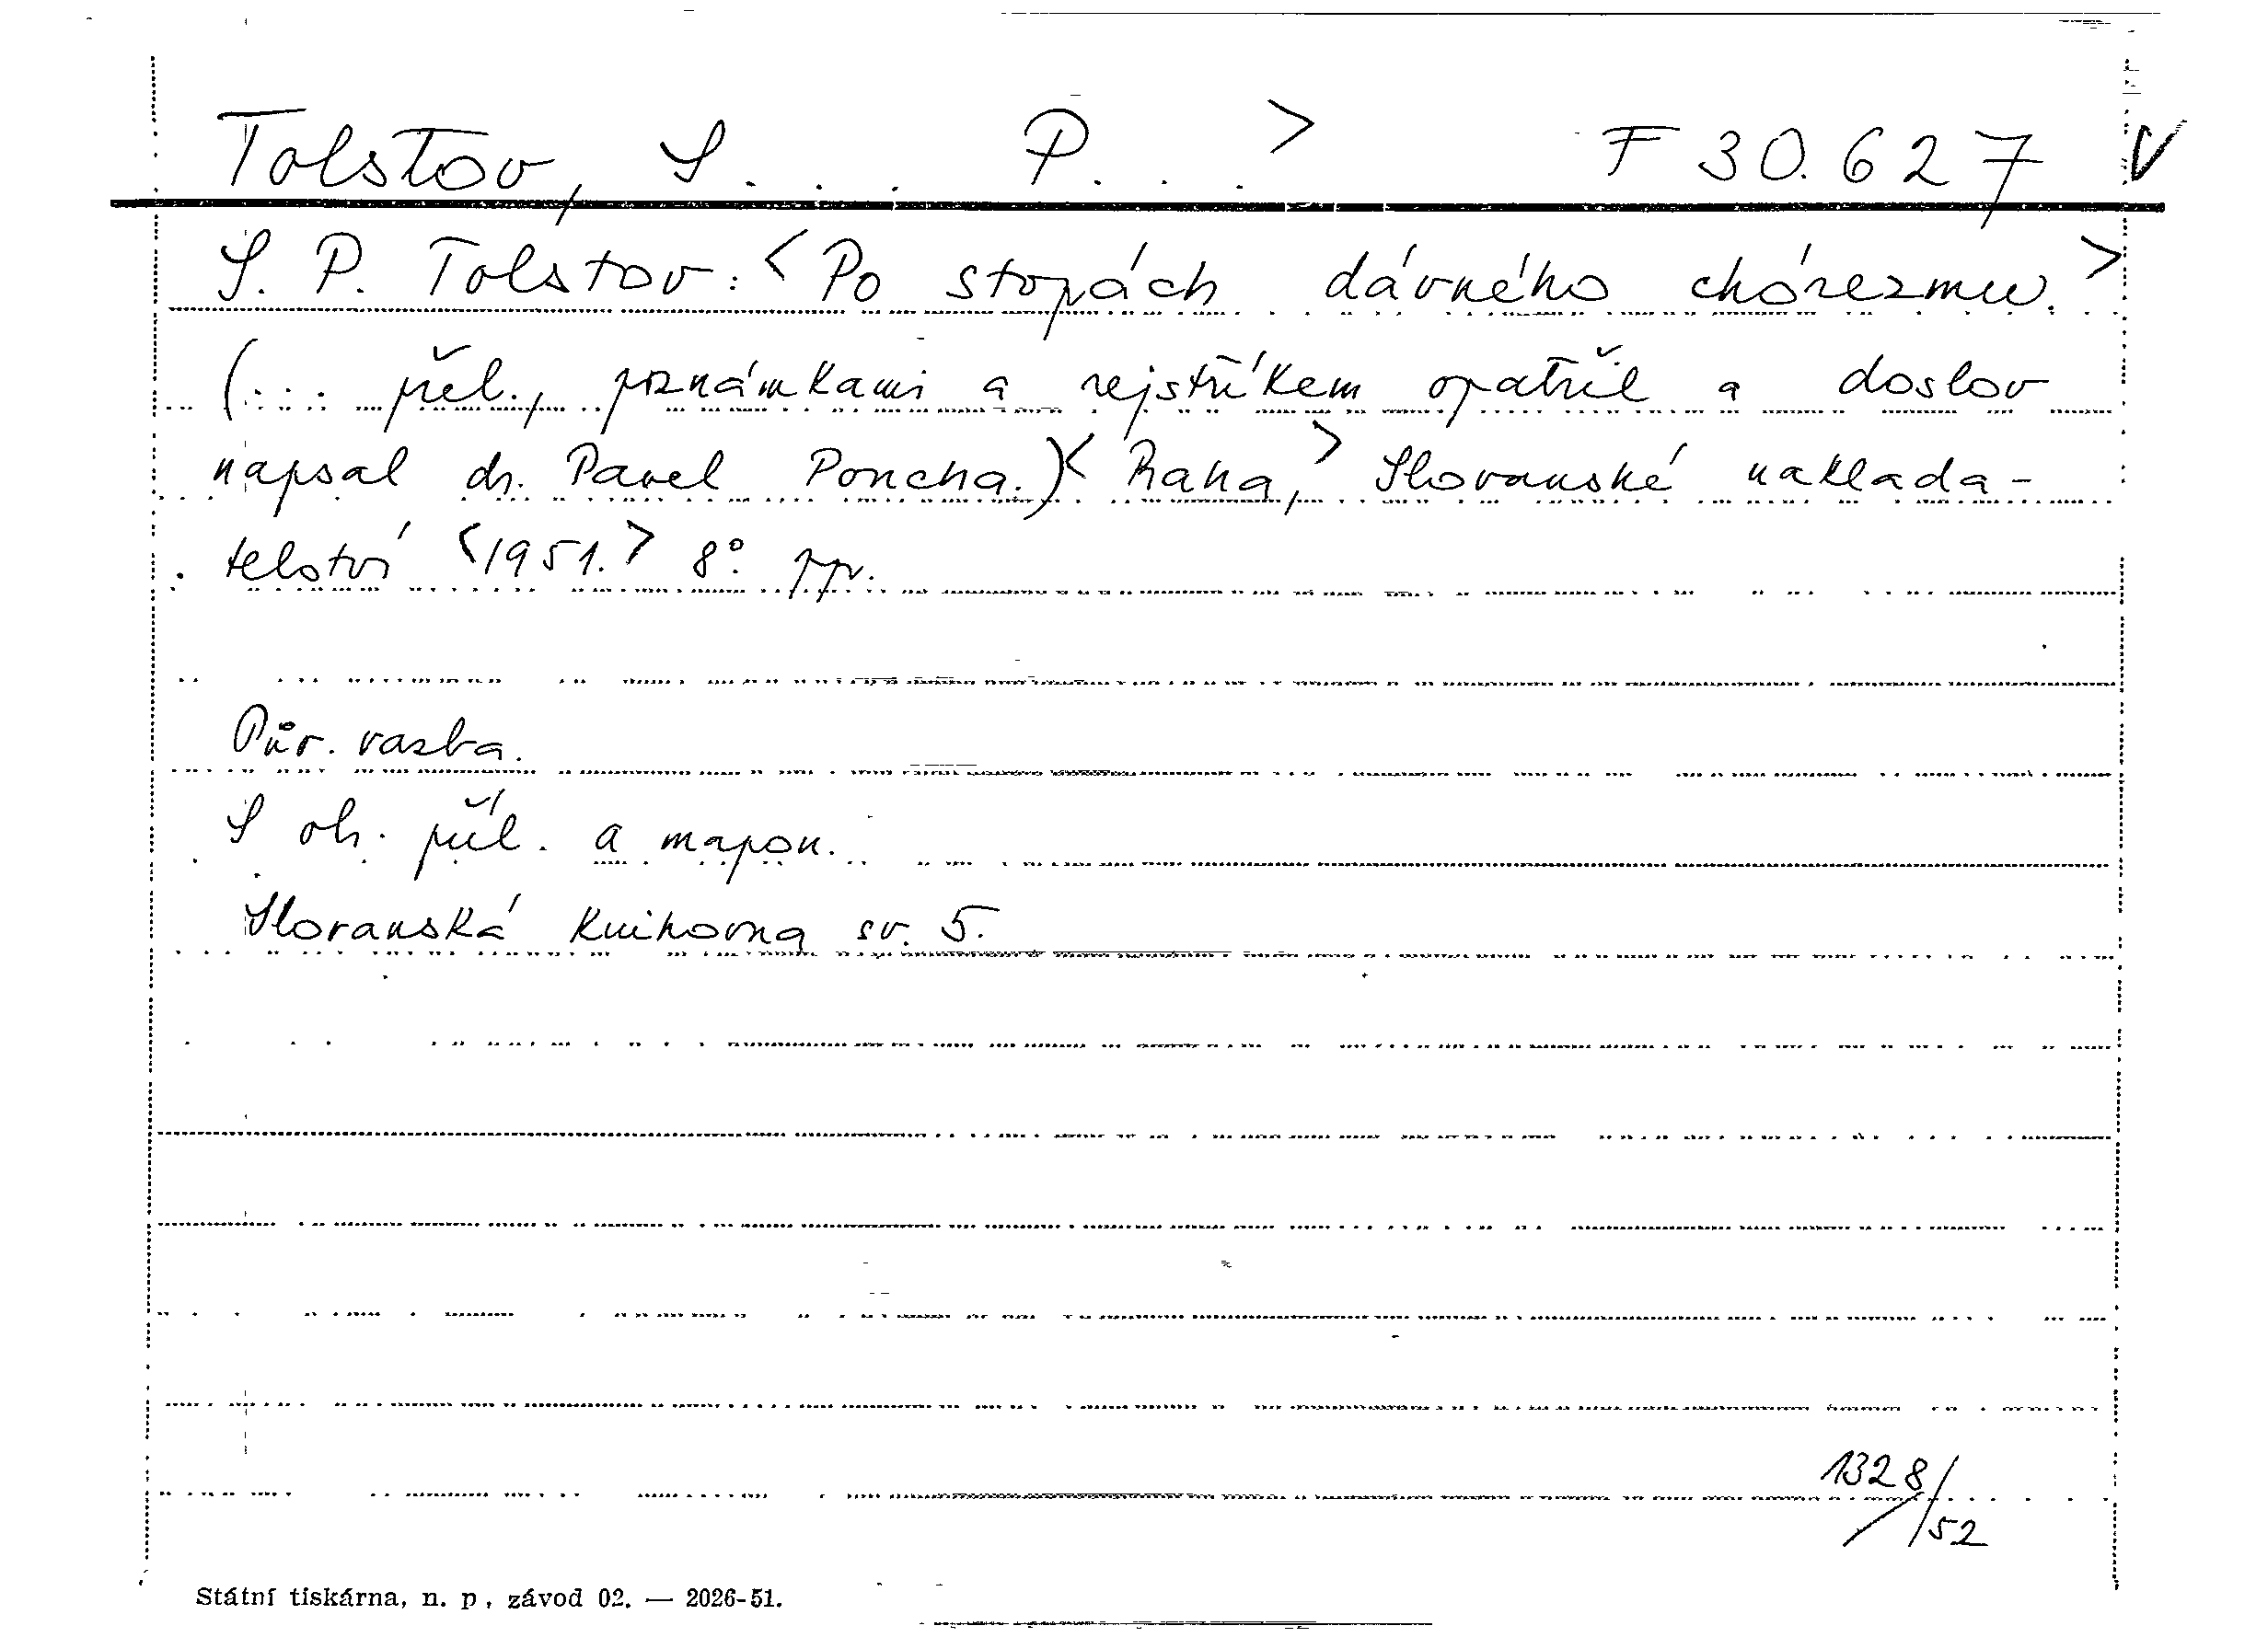 Tolstov, S... P...> F 30.627 V
S. P. Tolstov: <Po stopách dávného chórezmu.>
(... přel., poznámkami a rejstříkem opatřil a doslov
napsal dr. Pavel Poucha.) <Praha,> Slovanské naklada-
telství <1951.> 8°. ppv.
Pův. vazba.
S obr. příl. a mapou.
Slovanská knihovna sv. 5.
1328/
/52
Státní tiskárna, n. p., závod 02. — 2026-51.